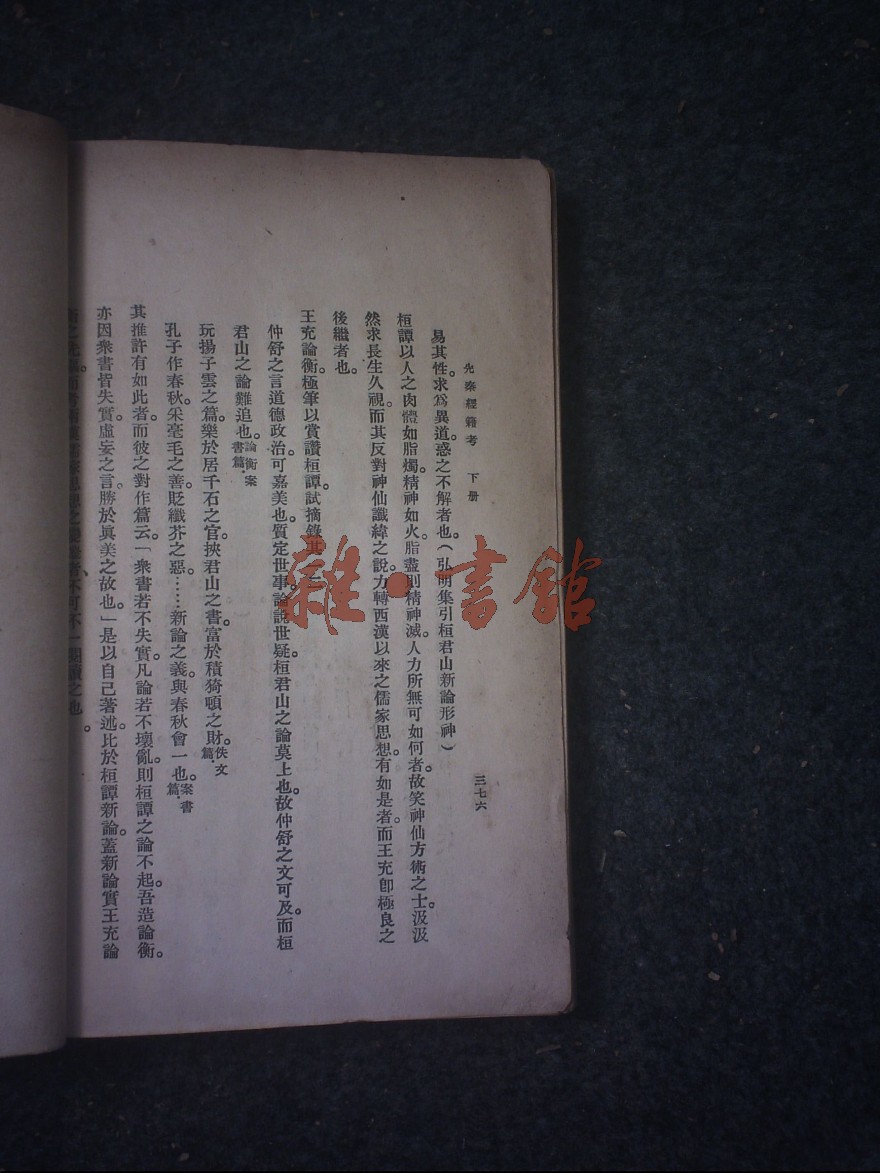 先秦經籍考 下册
三七六
易其性。求爲異道。惑之不解者也。(弘明集引桓君山新論形神)
桓譚以人之肉體如脂燭。精神如火。脂盡則精神滅。人力所無可如何者。故笑神仙方術之士汲汲
然求長生久視。而其反對神仙讖緯之說。力轉西漢以來之儒家思想。有如是者。而王充卽極良之
後繼者也。
王充論衡。極筆以賞讚桓譚。試摘錄其
仲舒之言道德政治。可嘉美也。質定世事。論說世疑。桓君山之論莫上也。故仲舒之文可及。而桓
君山之論難追也。論衡案書篇.
玩揚子雲之篇。樂於居千石之官。挾君山之書。富於積猗頓之財。佚文篇.
孔子作春秋。采毫毛之善。貶纖芥之惡。……新論之義。與春秋會一也。案書篇.
其推許有如此者。而彼之對作篇云。「衆書若不失實。凡論若不壞亂。則桓譚之論不起。吾造論衡。
亦因衆書皆失實。虛妄之言。勝於眞美之故也。」是以自己著述。比於桓譚新論。蓋新論實王充論
者不可不一 讀之也。
雜·書館